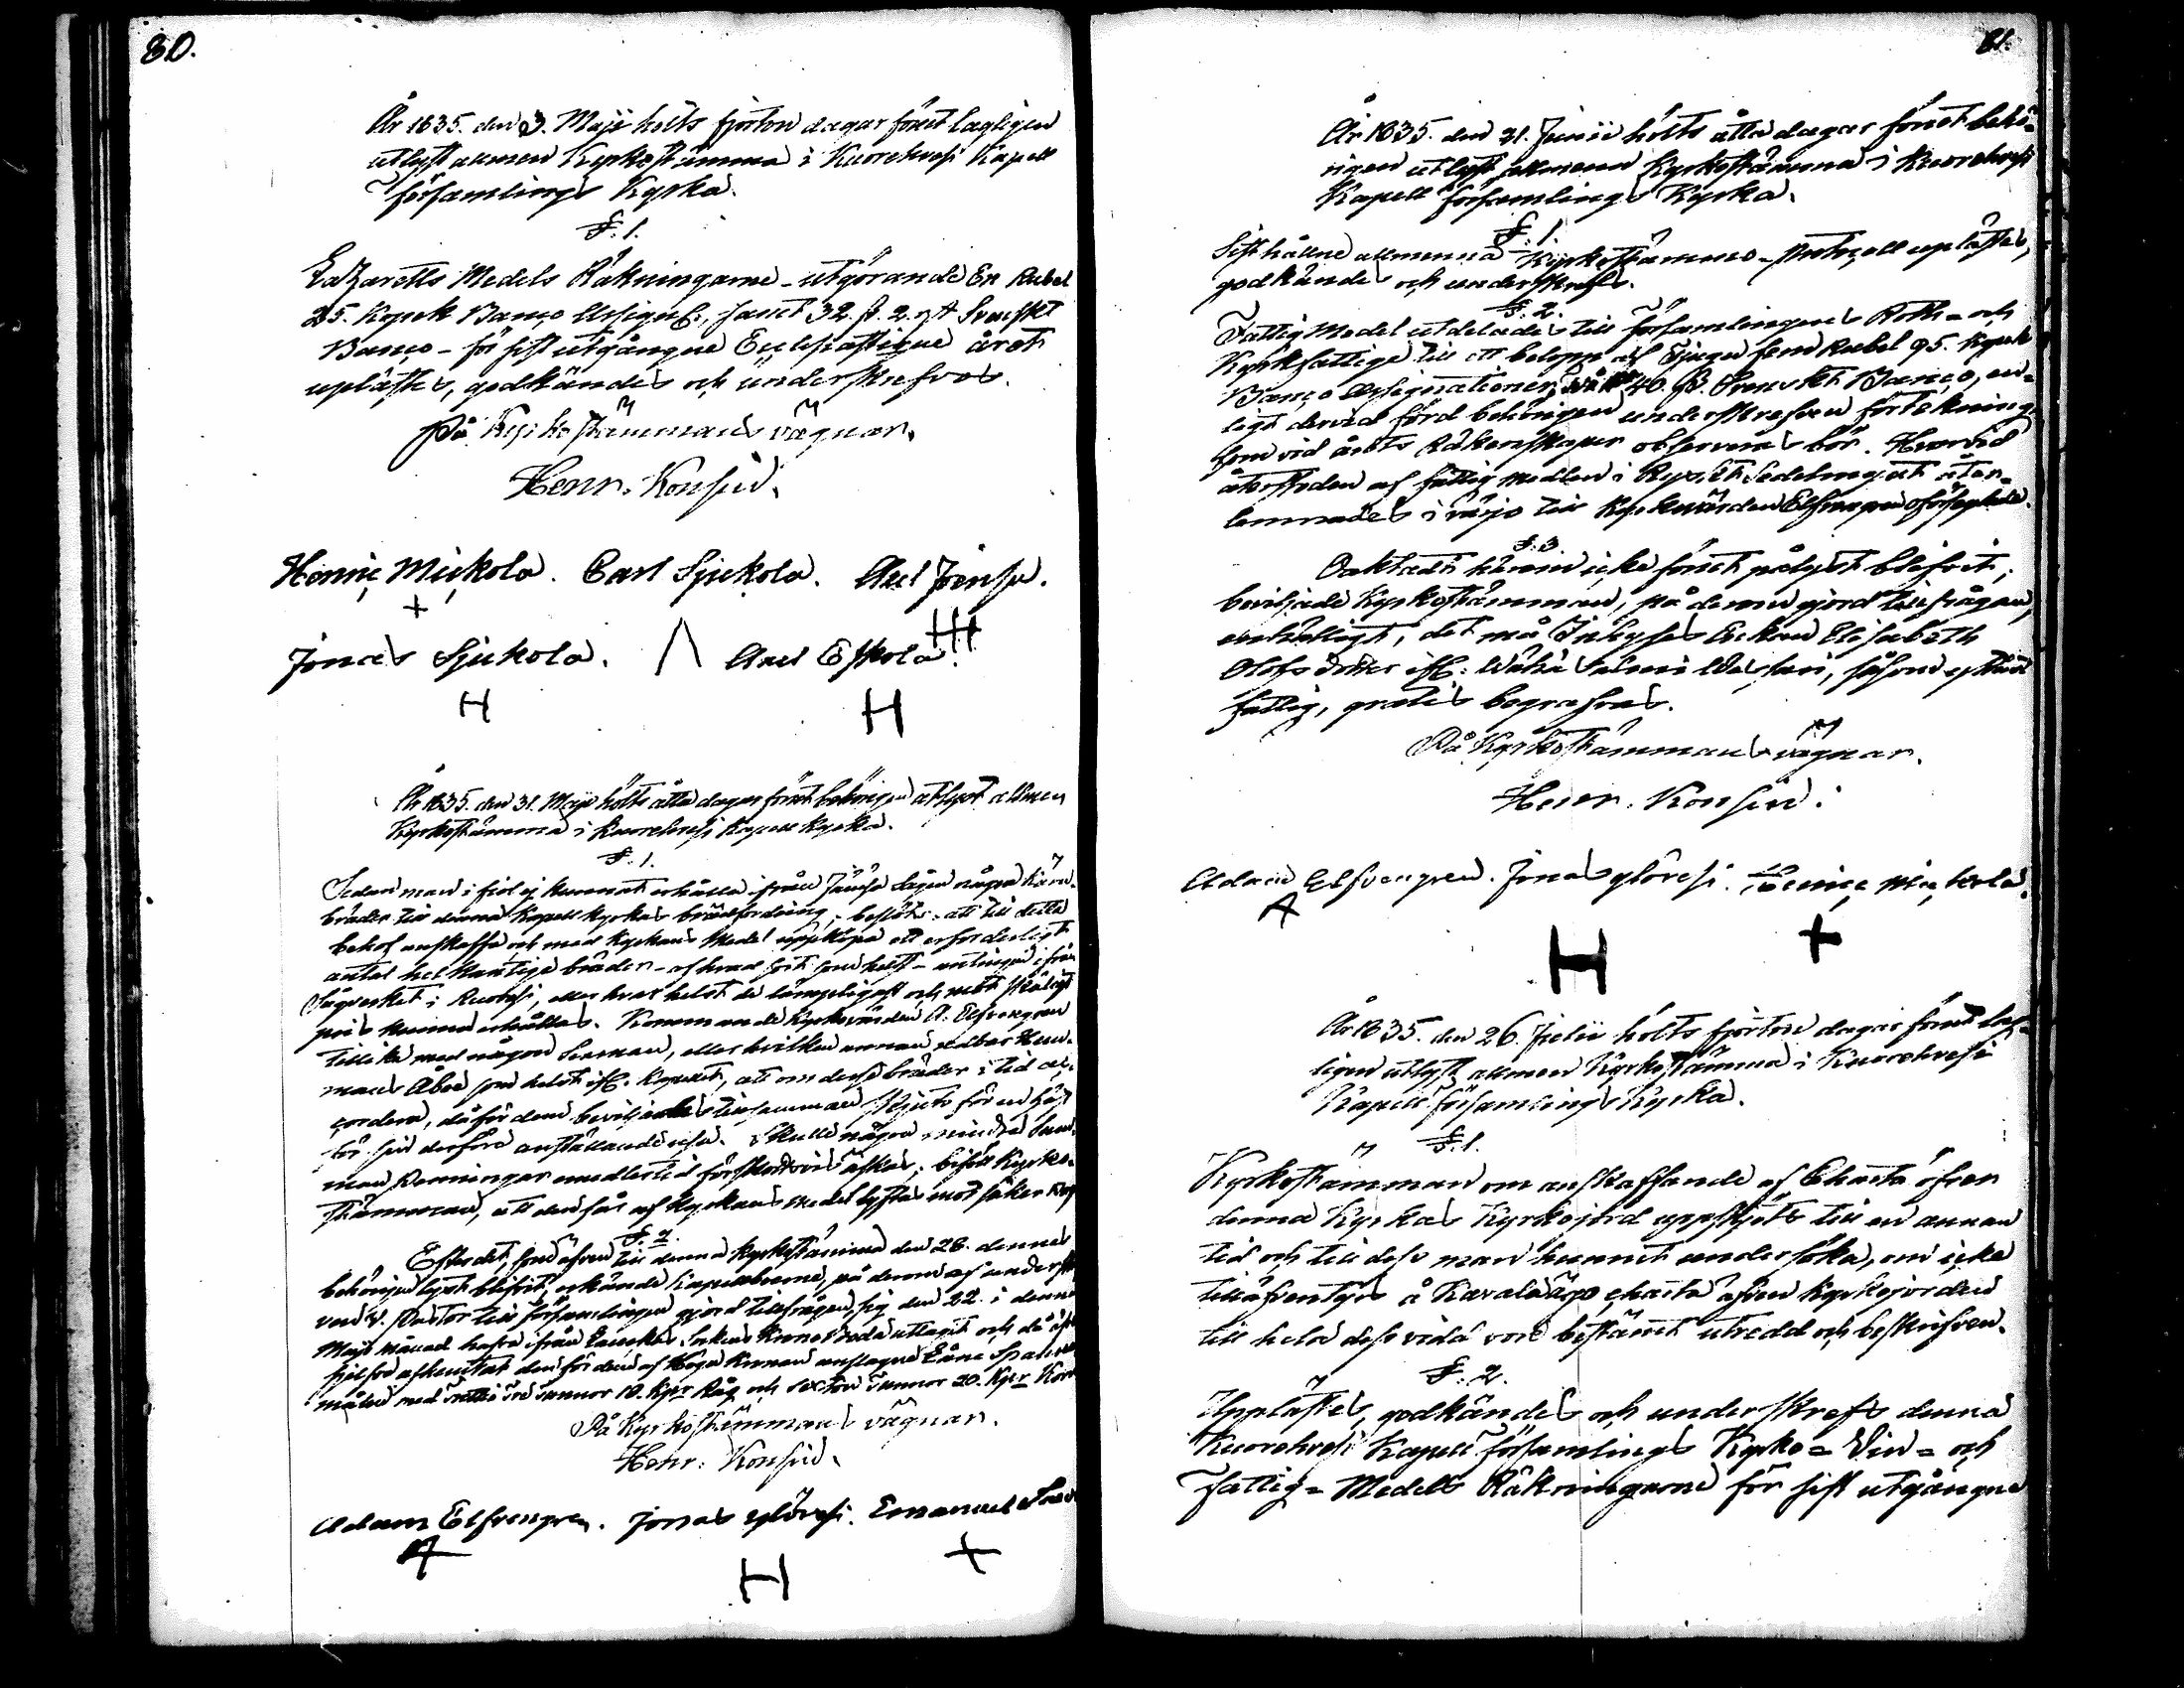 80.
År 1835. den 3. Maji hölts fjorton dagar förut lagligen
utlyst allmen Kyrkostämma i Kuorehvesi Kapell
församlings Kyrka.
§. 1.
Lazaretts Medels Räkningarne - utgörande En Rubel
25. Kopek Banco Assign:, samt 32. s. 2. rst Svenskt
Banco - för sist utgångne Ecclesiastique året
uplästes, godkändes och underskrefvos.
På Kyrkostämmans vägnar.
Henr. Konsin.
Henric Mickola. Carl Sjukola. Axel Joensu.
Jonas Sjukola. Axel Eskola.
År 1835. den 31. Maji hölts åtta dagar förut behörigen utlyst allmen
Kyrkostämma i Kuorehvesi Kapell Kyrka.
§. 1.
Sedan man i fiol ej kunnat erhålla ifrån Jämsä Sågen några
bräder till denna Kapell Kyrkas brädfordring, beslöts: att till detta
behof anskaffa och med Kyrkans Medel uppköpa ett erforderligt
antal helkantige bräder - af hvad sort som helst - antingen ifrån
Sågverket i Ruovesi, eller hvar helst de lämpligast och mot skäligt
pris kunna erhållas. Kommande Kyrkovärden A. Elfvengren
tillika med någon Sexman, eller hvilken annan redbar Hem-
mans Åboe som helst i Kapellet, att om desse bräder i tid ac-
cordera, då för dem beviljades tillsammans skjuts för en häst
för sin derföre anställande resa. Skulle någon mindre Sum-
man Penningar emedlertid förskottsvis äskas; biföll Kyrko-
stämman, att den får af Kyrkans medel lyftas mot säker
§. 2.
Efter det, som äfven till denna Kyrkostämma den 28. dennes
behörigen lyst blifvit, erkände Kapellboerne, på derom af
V. Pastor till församlingen gjord tillfrågan, sig den 22. i denne
Maji månad hafva ifrån Sockens Krono utlagit och då
sjelfve afhemtat den för dem af Höga Kronan anslagne Låne Spanne
målen med Trettio Tunnor 10. Kpr Råg och Sexton Tunnor 20. Kpr Korn
På Kyrkostämmans vägnar.
Henr. Konsin.
Adam Elfvengren. Jonas Ylövesi. Emanuel
81.
År 1835. den 21. Junii hölts åtta dagar förut behö-
rigen utlyst allmenn Kyrkostämma i Kuorehvesi
Kapell församlings Kyrka.
§. 1.
Sisthållne allmenna Kyrkostämmo-Protocoll uplästes,
godkändes och underskrefs.
§. 2.
Fattig Medel utdelades till församlingens Roth- och
Kyrkfattige till ett belopp af Tjugu fem Rubel 95. Kopek
Banco Assignationer, 40. s. Svenskt Banco, en-
ligt dervid förd behörigen underskrefven förtekning
som vid årets Räkenskaper observeras bör. Hvarvid
återstoden af fattig medlen i Rysk Sedelmynt åter-
lemnades i värjo till Kyrkovärden Elfvengren
§. 3.
Oaktadt härom icke förut pålyst blifvit,
beviljade Kyrkostämman, på derom gjord tillfrågan,
enhälligt, det må Inhyses Enkan Elisabeth
Olofs dotter ifr: Wäha Salmi såsom
fattig, gratis begrafvas.
På Kyrkostämmans vägnar.
Henr. Konsin.
Adam Elfvengren. Jonas Ylövesi. Henric Mickola.
År 1835. den 26. Julii hölts fjorton dagar förut lag-
ligen utlyst allmen Kyrkostämma i Kuorehvesi
Kapell församlings Kyrka.
§. 1.
Kyrkostämman om anskaffande af Charta öfver
denna Kyrkas Kyrkojord uppskjöts till en annan
tid och till dess man hunnit undersöka, om icke
tilläfventyrs å charta äfven Kyrkojorden
till hela dess vidd vore bestämt utredd och beskrifven.
§. 2.
Upplästes, godkändes och underskrefs denna
Kuorehvesi Kapell församlings Kyrko- Vin- och
Fattig-Medels Räkningarne för sist utgångne